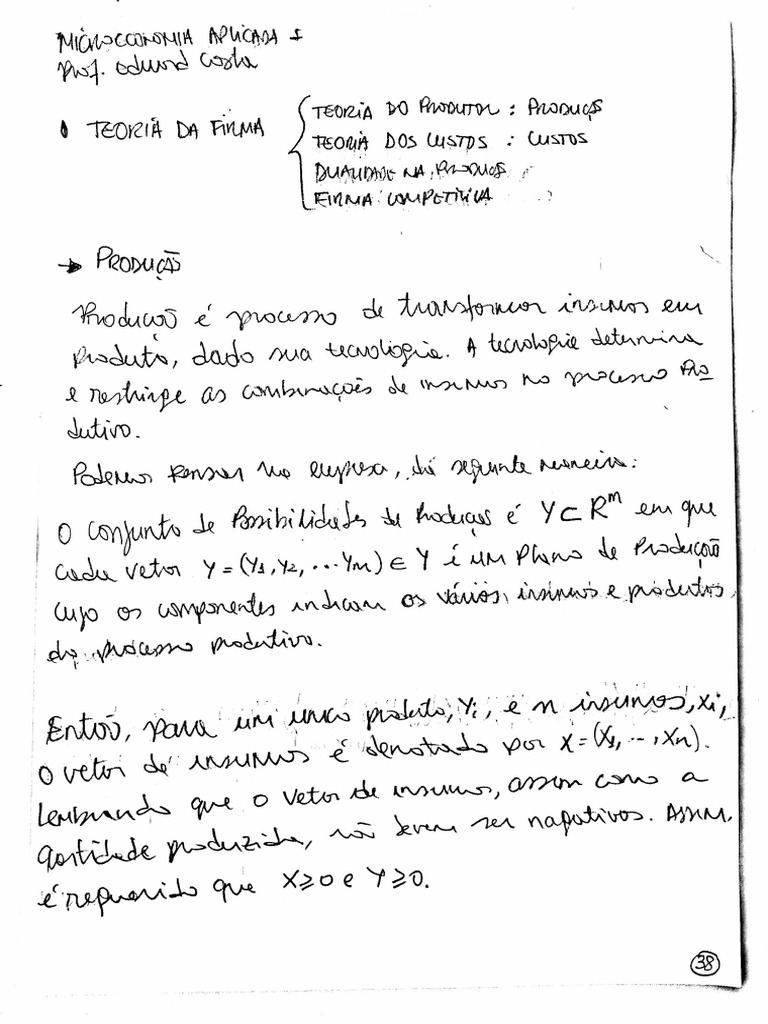 MICROECONOMIA APLICADA I
Prof. Eduard Costa
TEORIA DA FIRMA
TEORIA DO PRODUTOR : PRODUÇÃO
TEORIA DOS CUSTOS : CUSTOS
DUALIDADE NA PRODUÇÃO
FIRMA COMPETITIVA
→ PRODUÇÃO
Produção é processo de transformar insumos em
produto, dado sua tecnologia. A tecnologia determina
e restringe as combinações de insumos no processo pro-
dutivo.
Podemos pensar na empresa, da seguinte maneira:
O conjunto de Possibilidades de Produção é Y ⊂ R^m em que
cada vetor Y = (Y1, Y2, ... Ym) ∈ Y é um Plano de Produção
cujo os componentes indicam os vários insumos e produtos
do processo produtivo.
Então, para um unico produto, Yi, e n insumos, Xi,
O vetor de insumos é denotado por X = (X1, ..., Xn).
Lembrando que o vetor de insumos, assim como a
quantidade produzida, não devem ser negativos. Assim,
é requerido que X ≥ 0 e Y ≥ 0.
38